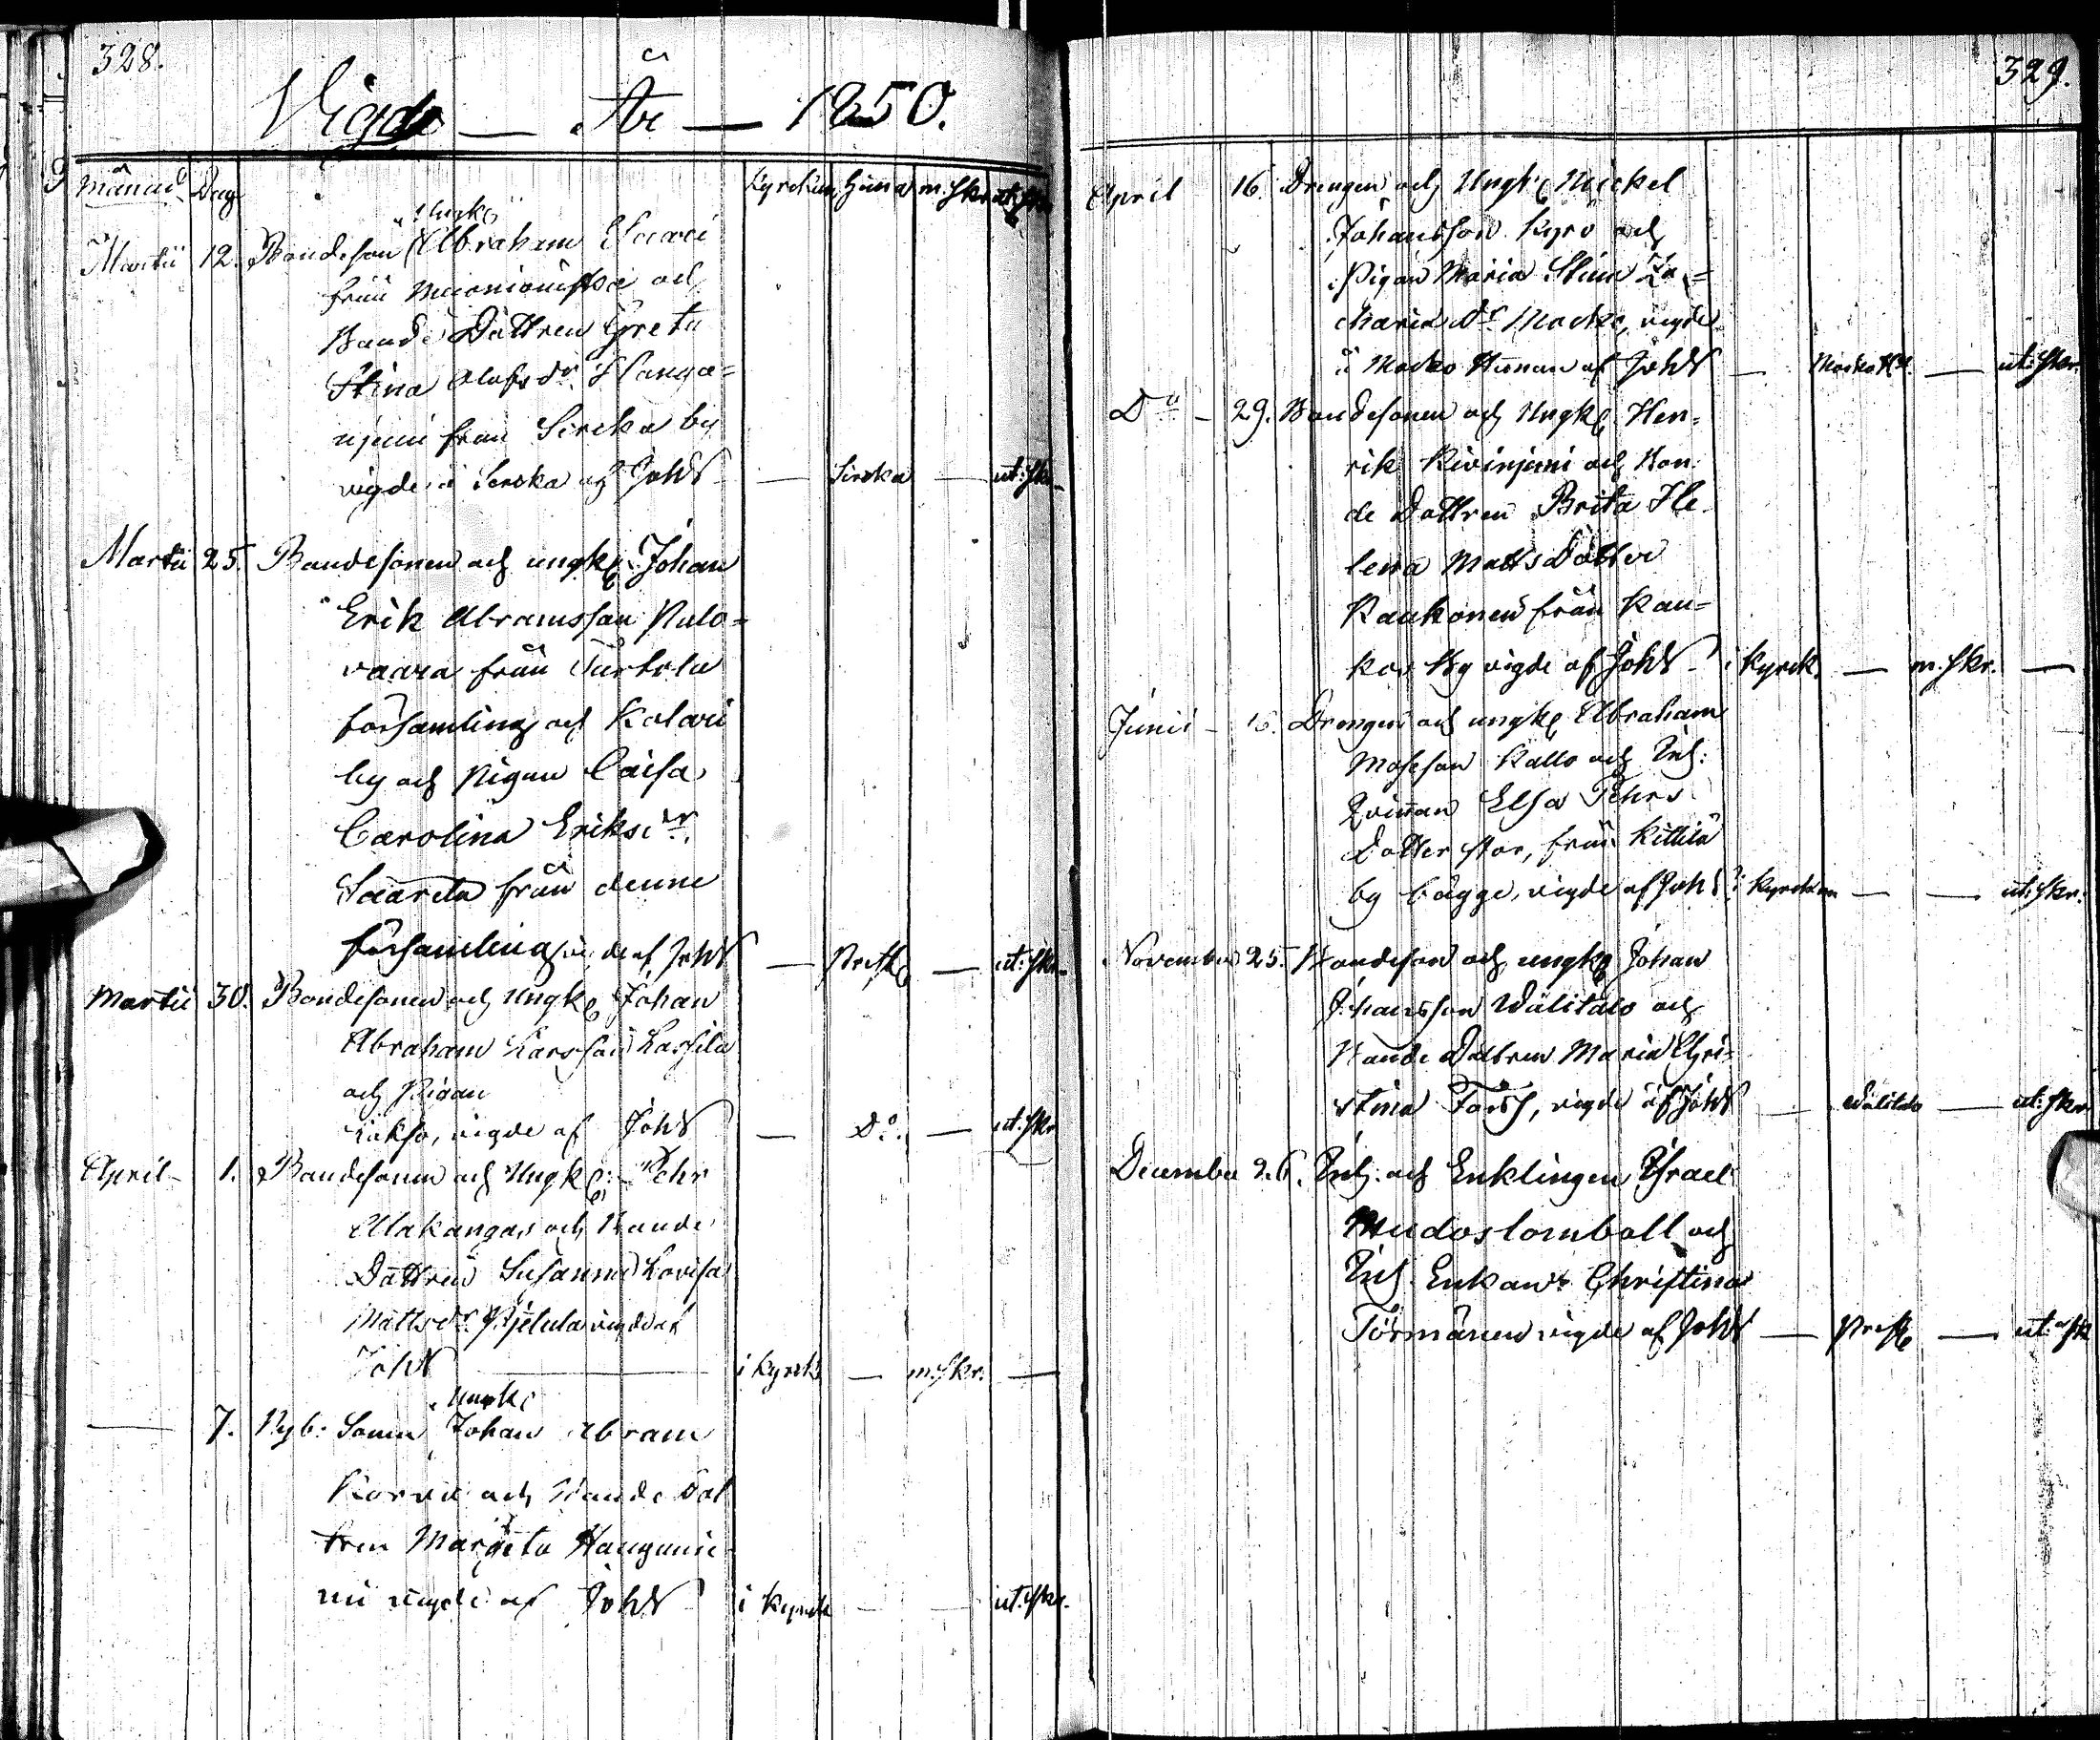 328.
Vigde — År — 1850.
Månad Dag Kyrckan Hema m. skr ut: skr
Ungk:
Martii 12. Bondeson Abraham Saari
från Muonioniska och
Bonde Dottren Greta
Stina Olofs dr. Hanga=
njemi från Sircka by
vigde i Sircka af Joh — Sircka — ut: skr
Martii 25. Bondesonen och ungk: Johan
Erik Abramsson Palo=
vaara från Turtola
församling och Kolari
by och Pigan Caisa
Carolina Eriks dr.
Saarela från denne
församling vigde af Joh — Prestg — ut: skr
Martii 30. Bondesonen och Ungk: Johan
Abraham Larsson Lassila
och Pigan
vigde af Joh — Do. — ut: skr
April — 1. Bondesonen och Ungk: Pehr
Alakangas och Bonde
Dottren Susanna Lovisa
Matts dr. vigde af
Joh — i Kyrck — m. skr. —
Ungk:
— 7. Nyb: Sonen Johan Abram
Korvu och Bonde Dot
tren Margeta Haugunie
mi vigde af Joh i Kyrck — — ut: skr.
329.
April 16. Drengen och Ungk: Mickel
Johansson Kyrö och
Pigan Maria Stina Za=
charia Dr Mocko, vigde
i Mocko Heman af Joh — Mocko Hn. — ut: skr.
Do — 29. Bondesonen och Ungk: Hen=
rik Kivinjemi och Bon:
de Dottren Brita He
lena Matts Dotter
Kaukonen från Kau=
kos By vigde af Joh — i Kyrck. — m. skr. —
Junii — 15. Drengen och ungk: Abraham
Moseson Kallo och Inh:
Qvinnan Elsa Pehrs
Dotter Stor, från Kittilä
by bägge, vigde af Joh i Kyrckan — — ut: skr.
November 25. Bondeson och ungk: Johan
Johansson Wälitalo och
Bonde Dottren Maria Chri=
stina Torss, vigde af Joh — Wälitalo — ut: skr
December 26. Inh: och Enklingen Israel
Muodoslomboll och
Inh. Enkan Christina
Törmänen vigde af Joh — Prestg — ut: sk